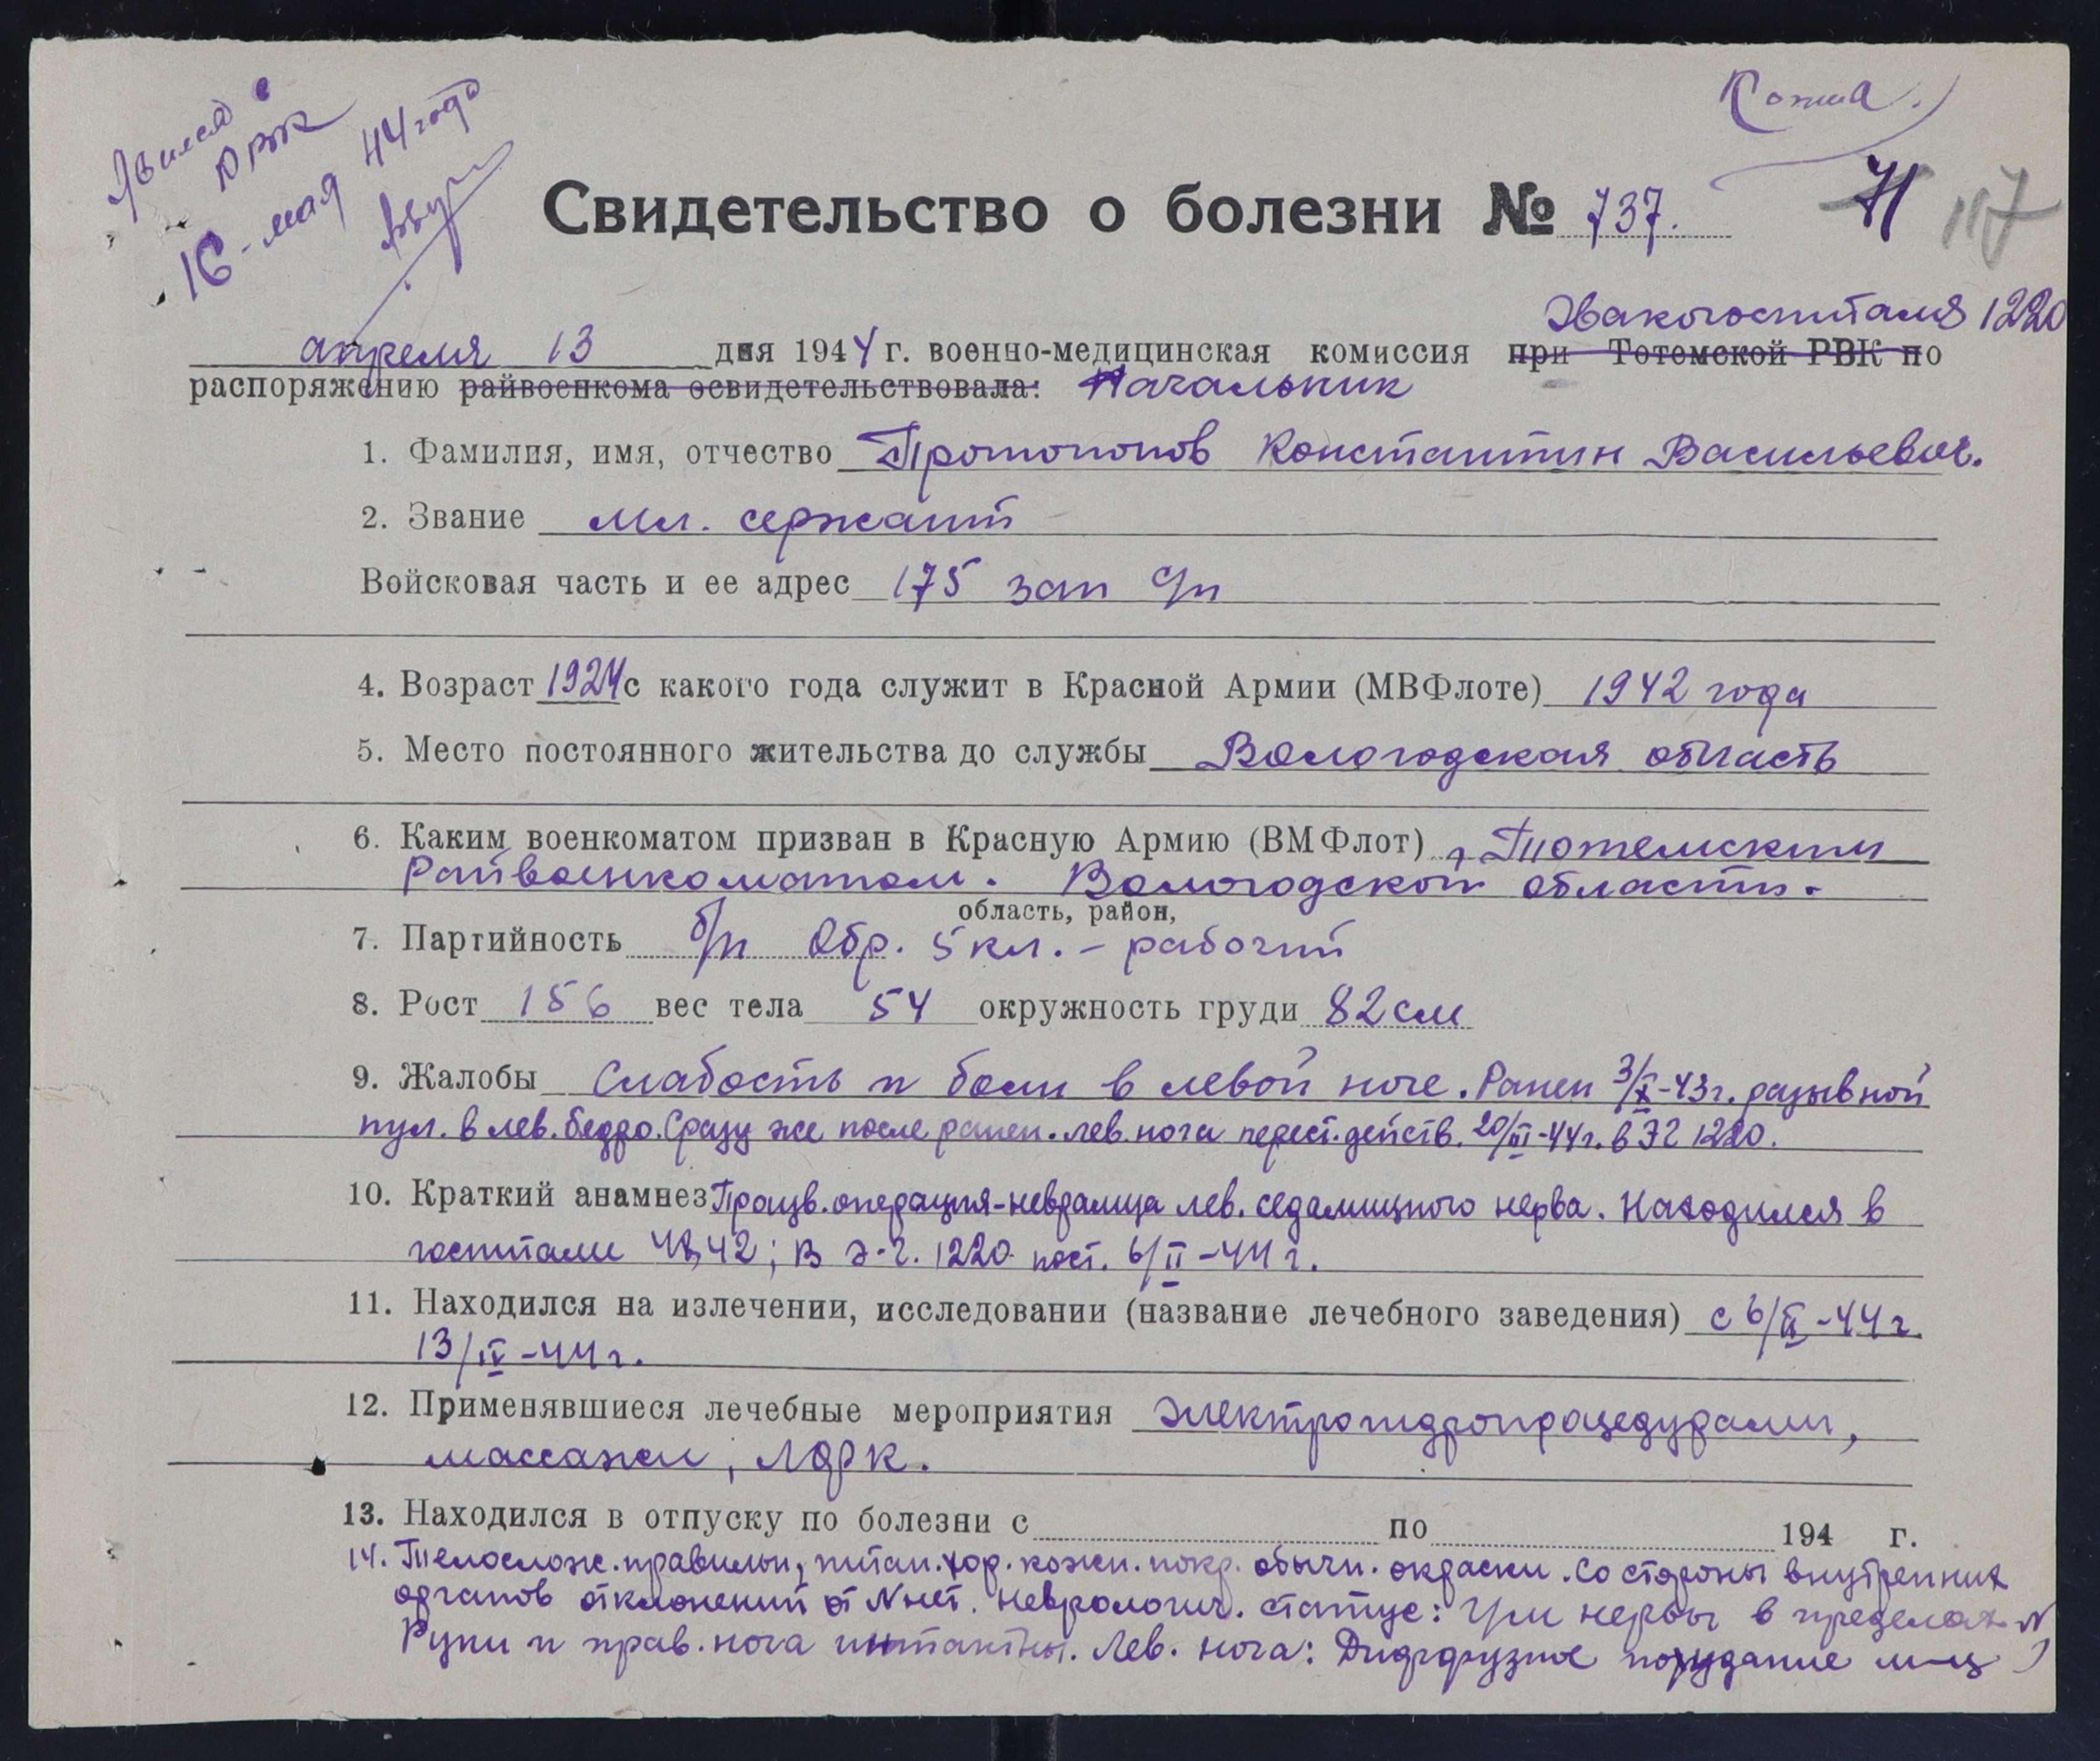 Явился в
РВК
16 - мая 44 года
Копия.
71 117
Свидетельство о болезни № 737.
Эвакогоспиталя 1220
апреля 13 дня 1944 г. военно-медицинская комиссия при Тотемской РВК по
распоряжению райвоенкома освидетельствовала: Начальник
1. Фамилия, имя, отчество Протопопов Константин Васильевич.
2. Звание Мл. сержант
Войсковая часть и ее адрес 175 зап с/п
4. Возраст 1924 с какого года служит в Красной Армии (МВФлоте) 1942 года
5. Место постоянного жительства до службы Вологодская область
6. Каким военкоматом призван в Красную Армию (ВМФлот) Тотемским
Райвоенкоматом. Вологодской области.
область, район,
7. Партийность б/п Обр. 5 кл. - рабочий
8. Рост 156 вес тела 54 окружность груди 82 см
9. Жалобы Слабость и боли в левой ноге. Ранен 3/X-43г. разывной
пул. в лев. бедро. Сразу же после ранен. лев. нога перест. действ. 20/III-44г. в ЭГ 1220.
10. Краткий анамнез Працв. операция-невралица лев. седалищного нерва. Находился в
госпитали 4842; В э.г. 1220 пост. 6/II-44 г.
11. Находился на излечении, исследовании (название лечебного заведения) с 6/II-44 г.
13/IV-44 г.
12. Применявшиеся лечебные мероприятия электрогидропроцедурами,
массажем, ЛФК.
13. Находился в отпуску по болезни с по 194 г.
14. Телослож. правильн, питан. хор. кожн. покр. обычн. окраски. Со стороны внутренних
органов отклонений от N нет. Неврологич. статус: Чм нервы в пределах N
Руки и прав. нога интактны. Лев. нога: Диффузное похудание м-ц